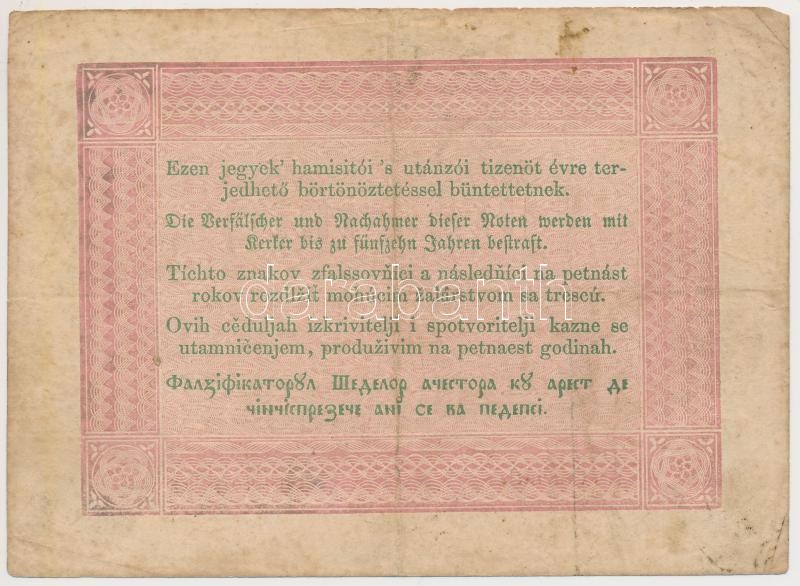 Ezen jegyek' hamisitói 's utánzói tizenöt évre ter-
jedhető börtönöztetéssel büntettetnek.
Die Verfälscher und Nachahmer dieser Noten werden mit
Kerker bis zu fünfzehn Jahren bestraft.
Tíchto znakov zfalssovňíci a následňíci na petnást
rokov rozďlžit mohúcim žalárstvom sa trescú.
darabanth
Ovih cěduljah izkrivitelji i spotvoritelji kazne se
utamničenjem, produživim na petnaest godinah.
Фалзіфікаторꙋл Шеделор ачестора кꙋ арест де
чінчіспрезече ані се ва педепсі.